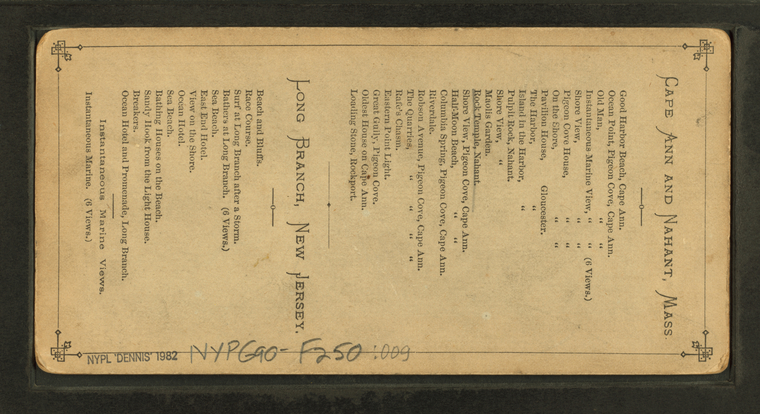 CAPE ANN AND NAHANT, MASS
Good Harbor Beach, Cape Ann.
Ocean Point, Pigeon Cove, Cape Ann.
Old Man, " "
Instantaneous Marine View, " (6 Views.)
Shore View, " "
Pigeon Cove House, " "
On the Shore, " "
Pavilion House, Gloucester.
The Harbor, "
Island in the Harbor, "
Pulpit Rock, Nahant.
Shore View, "
Maolis Garden.
Rock Temple, Nahant.
Shore View, Pigeon Cove, Cape Ann.
Half-Moon Beach, " "
Columbia Spring, Pigeon Cove, Cape Ann.
Riverdale.
Robson Avenue, Pigeon Cove, Cape Ann.
The Quarries, " " " "
Rafe's Chasm.
Eastern Point Light.
Great Gully, Pigeon Cove.
Oldest House on Cape Ann.
Loading Stone, Rockport.
LONG BRANCH, NEW JERSEY.
Beach and Bluffs.
Race Course.
Surf at Long Branch after a Storm.
Bathers at Long Branch. (6 Views.)
Sea Beach.
East End Hotel.
View on the Shore.
Ocean Hotel.
Sea Beach.
Bathing Houses on the Beach.
Sandy Hook from the Light House.
Breakers.
Ocean Hotel and Promenade, Long Branch.
Instantaneous Marine Views.
Instantaneous Marine. (6 Views.)
NYPL 'DENNIS' 1982 NYPG90-F250:009